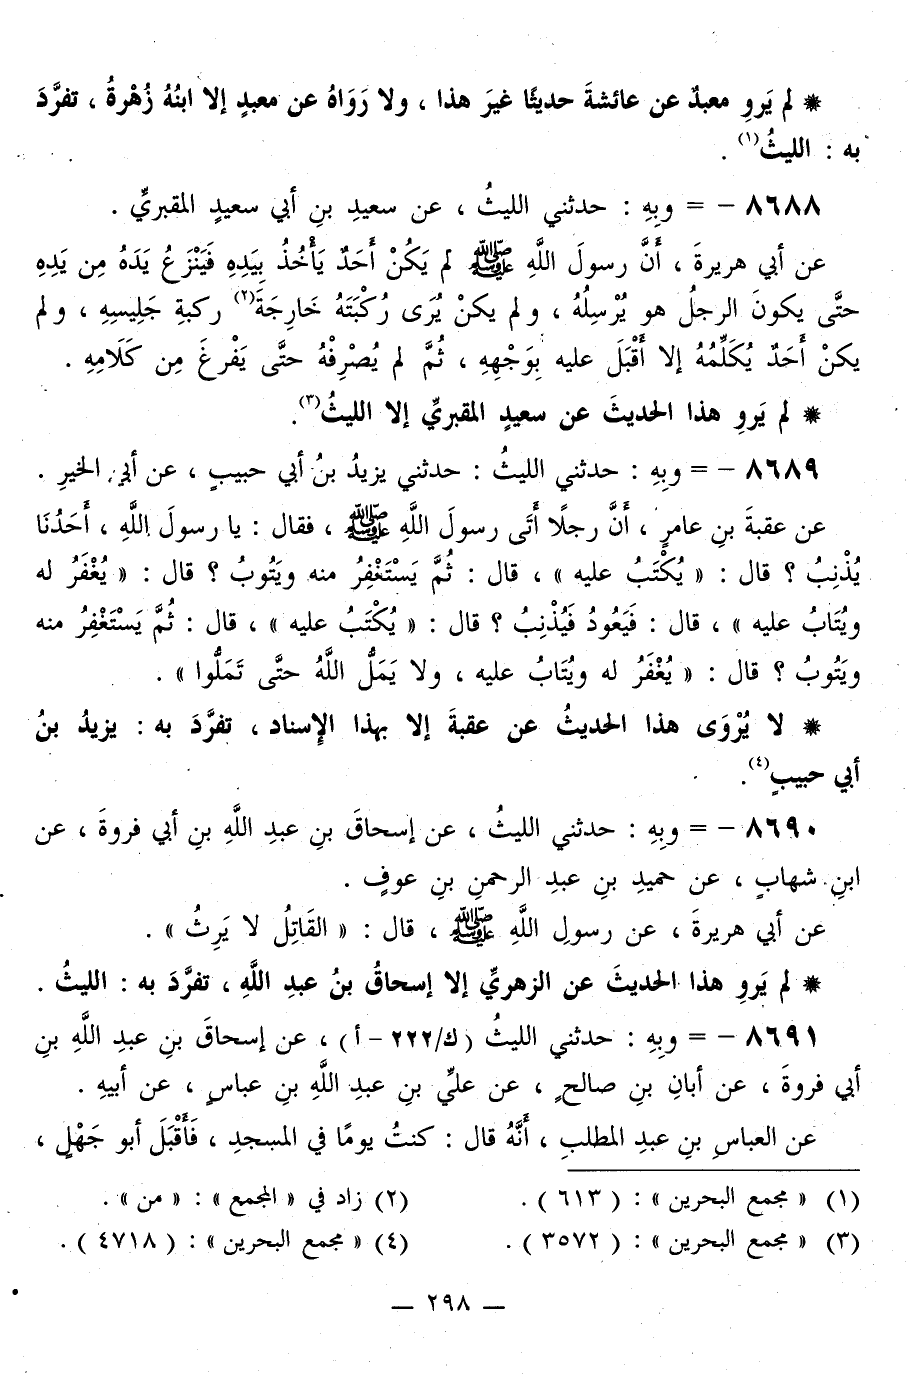 * لم يَروِ معبدٌ عن عائشةَ حديثًا غيرَ هذا ، ولا رَوَاهُ عن معبدٍ إلا ابنُهُ زُهْرةُ ، تفرَّدَ
به : الليثُ(١) .
٨٦٨٨ - = وبِهِ : حدثني الليثُ ، عن سعيدِ بنِ أبي سعيدٍ المقبريِّ .
عن أبي هريرةَ ، أَنَّ رسولَ اللَّهِ ﷺ لم يَكُنْ أَحَدٌ يَأْخُذُ بِيَدِهِ فَيَنْزَعُ يَدَهُ مِن يَدِهِ
حتَّى يكونَ الرجلُ هو يُرْسِلُهُ ، ولم يكنْ يُرَى رُكْبَتَهُ خَارِجَةً(٢) ركبةِ جَلِيسِهِ ، ولم
يكنْ أَحَدٌ يُكَلِّمُهُ إلا أَقْبَلَ عليه بِوَجْهِهِ ، ثُمَّ لم يُصْرِفْهُ حتَّى يَفْرغَ مِن كَلَامِهِ .
* لم يَروِ هذا الحديثَ عن سعيدٍ المقبريِّ إلا الليثُ(٣).
٨٦٨٩ - = وبِهِ : حدثني الليثُ : حدثني يزيدُ بنُ أبي حبيبٍ ، عن أبي الخيرِ .
عن عقبةَ بنِ عامرٍ ، أَنَّ رجلًا أَتَى رسولَ اللَّهِ ﷺ ، فقال : يا رسولَ اللَّهِ ، أَحَدُنَا
يُذْنِبُ ؟ قال : « يُكْتَبُ عليه » ، قال : ثُمَّ يَسْتَغْفِرُ منه ويَتُوبُ ؟ قال : « يُغْفَرُ له
ويُتَابُ عليه » ، قال : فَيَعُودُ فَيُذْنِبُ ؟ قال : « يُكْتَبُ عليه » ، قال : ثُمَّ يَسْتَغْفِرُ منه
ويَتُوبُ ؟ قال : « يُغْفَرُ له ويُتَابُ عليه ، ولا يَمَلُّ اللَّهُ حتَّى تَمَلُّوا » .
* لا يُرْوَى هذا الحديثُ عن عقبةَ إلا بهذا الإسناد ، تفرَّدَ به : يزيدُ بنُ
أبي حبيبٍ(٤).
٨٦٩٠ - = وبِهِ : حدثني الليثُ ، عن إسحاقَ بنِ عبدِ اللَّهِ بنِ أبي فروةَ ، عن
ابنِ شهابٍ ، عن حميدِ بنِ عبدِ الرحمنِ بنِ عوفٍ .
عن أبي هريرةَ ، عن رسولِ اللَّهِ ﷺ ، قال : « القَاتِلُ لا يَرِثُ » .
* لم يَروِ هذا الحديثَ عن الزهريِّ إلا إسحاقُ بنُ عبدِ اللَّهِ ، تفرَّدَ به : الليثُ .
٨٦٩١ - = وبِهِ : حدثني الليثُ (ك/٢٢٢ - أ) ، عن إسحاقَ بنِ عبدِ اللَّهِ بنِ
أبي فروةَ ، عن أبانِ بنِ صالحٍ ، عن عليِّ بنِ عبدِ اللَّهِ بنِ عباسٍ ، عن أبيهِ .
عن العباسِ بنِ عبدِ المطلبِ ، أَنَّهُ قال : كنتُ يومًا في المسجدِ ، فَأَقْبَلَ أبو جَهْلٍ ،
(١) « مجمع البحرين » : (٦١٣) . (٢) زاد في « المجمع » : « من » .
(٣) « مجمع البحرين » : (٣٥٧٢) . (٤) « مجمع البحرين » : (٤٧١٨) .
— ٢٩٨ —